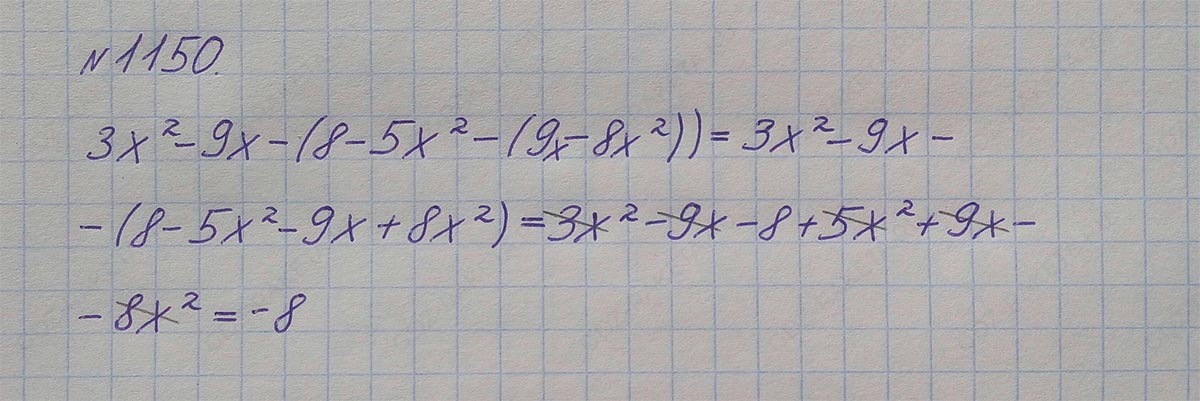 №1150.
3x²-9x-(8-5x²-(9x-8x²))=3x²-9x-
-(8-5x²-9x+8x²)=3x²-9x-8+5x²+9x-
-8x²=-8